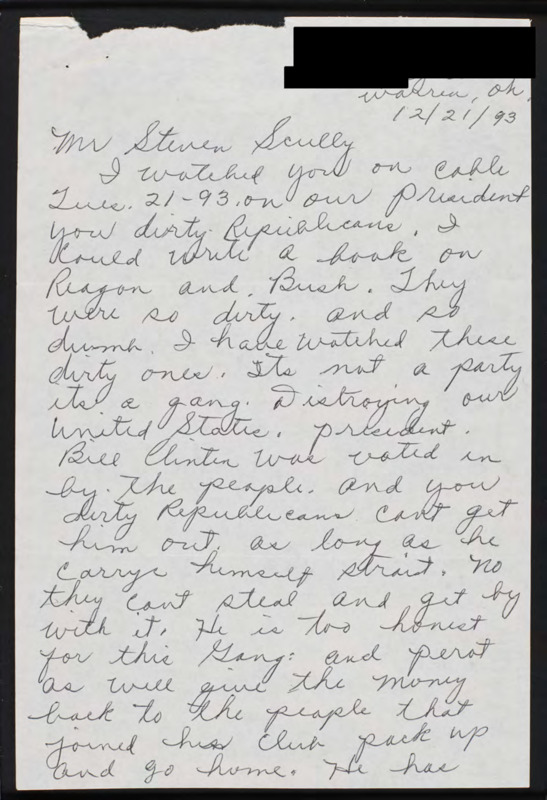 Warren, Oh,
12/21/93
Mr Steven Scully
I watched you on cable
Tues. 21-93. on our President
you dirty Republicans. I
could write a book on
Reagon and. Bush. They
were so dirty. and so
dumb. I have watched these
dirty ones. Its not a party
its a gang. Distroying our
United States. president.
Bill Clinton was voted in
by. the people. and you
dirty Republicans cant get
him out. as long as he
carrys himself strait. no
they cant steal and get by
with it. He is too honest
for this Gang: and perot
as well give the money
back to the people that
joined his Club pack up
and go home. He has